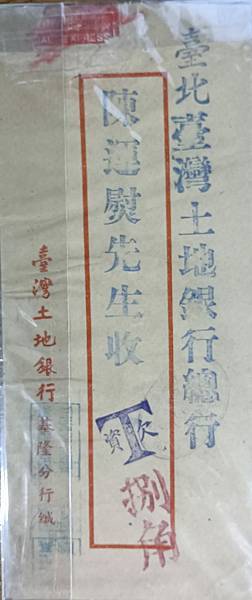 臺北臺灣土地銀行總行
陳運熨先生收
欠資
T
捌角
臺灣土地銀行
基隆分行緘